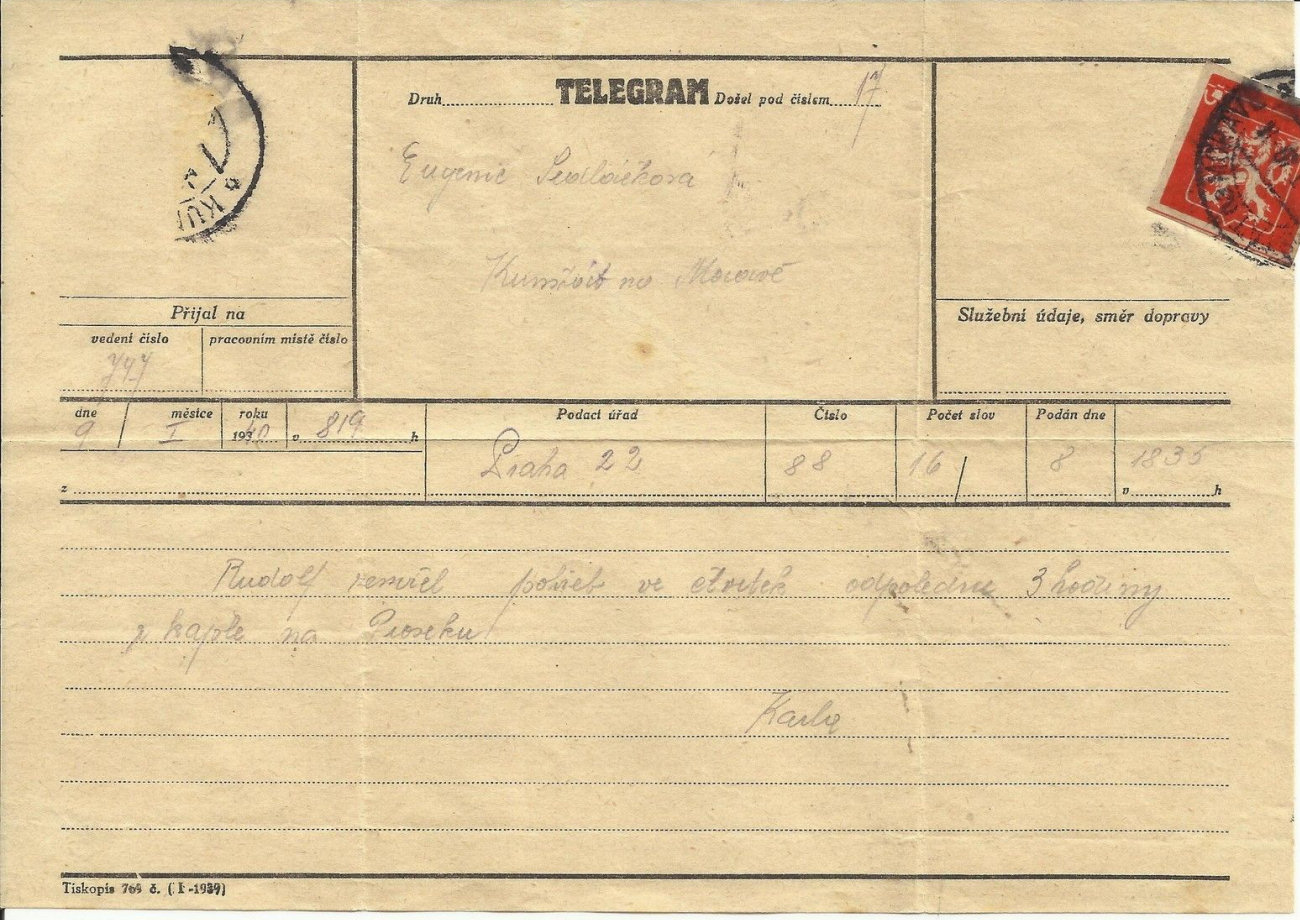 Druh TELEGRAM Došel pod číslem 17
Eugenie Sedláčková
na Moravě
Přijal na
vedení číslo
pracovním místě číslo
747
Služební údaje, směr dopravy
dne 9 / měsíce I roku 1940 v 819 h
Podací úřad Praha 22
Číslo 88
Počet slov 16 /
Podán dne 8
v 1835 h
z
Rudolf zemřel pohřeb ve čtvrtek odpoledne 3 hodiny
z kaple na Proseku
Karla
Tiskopis 769 č. (I-1939)